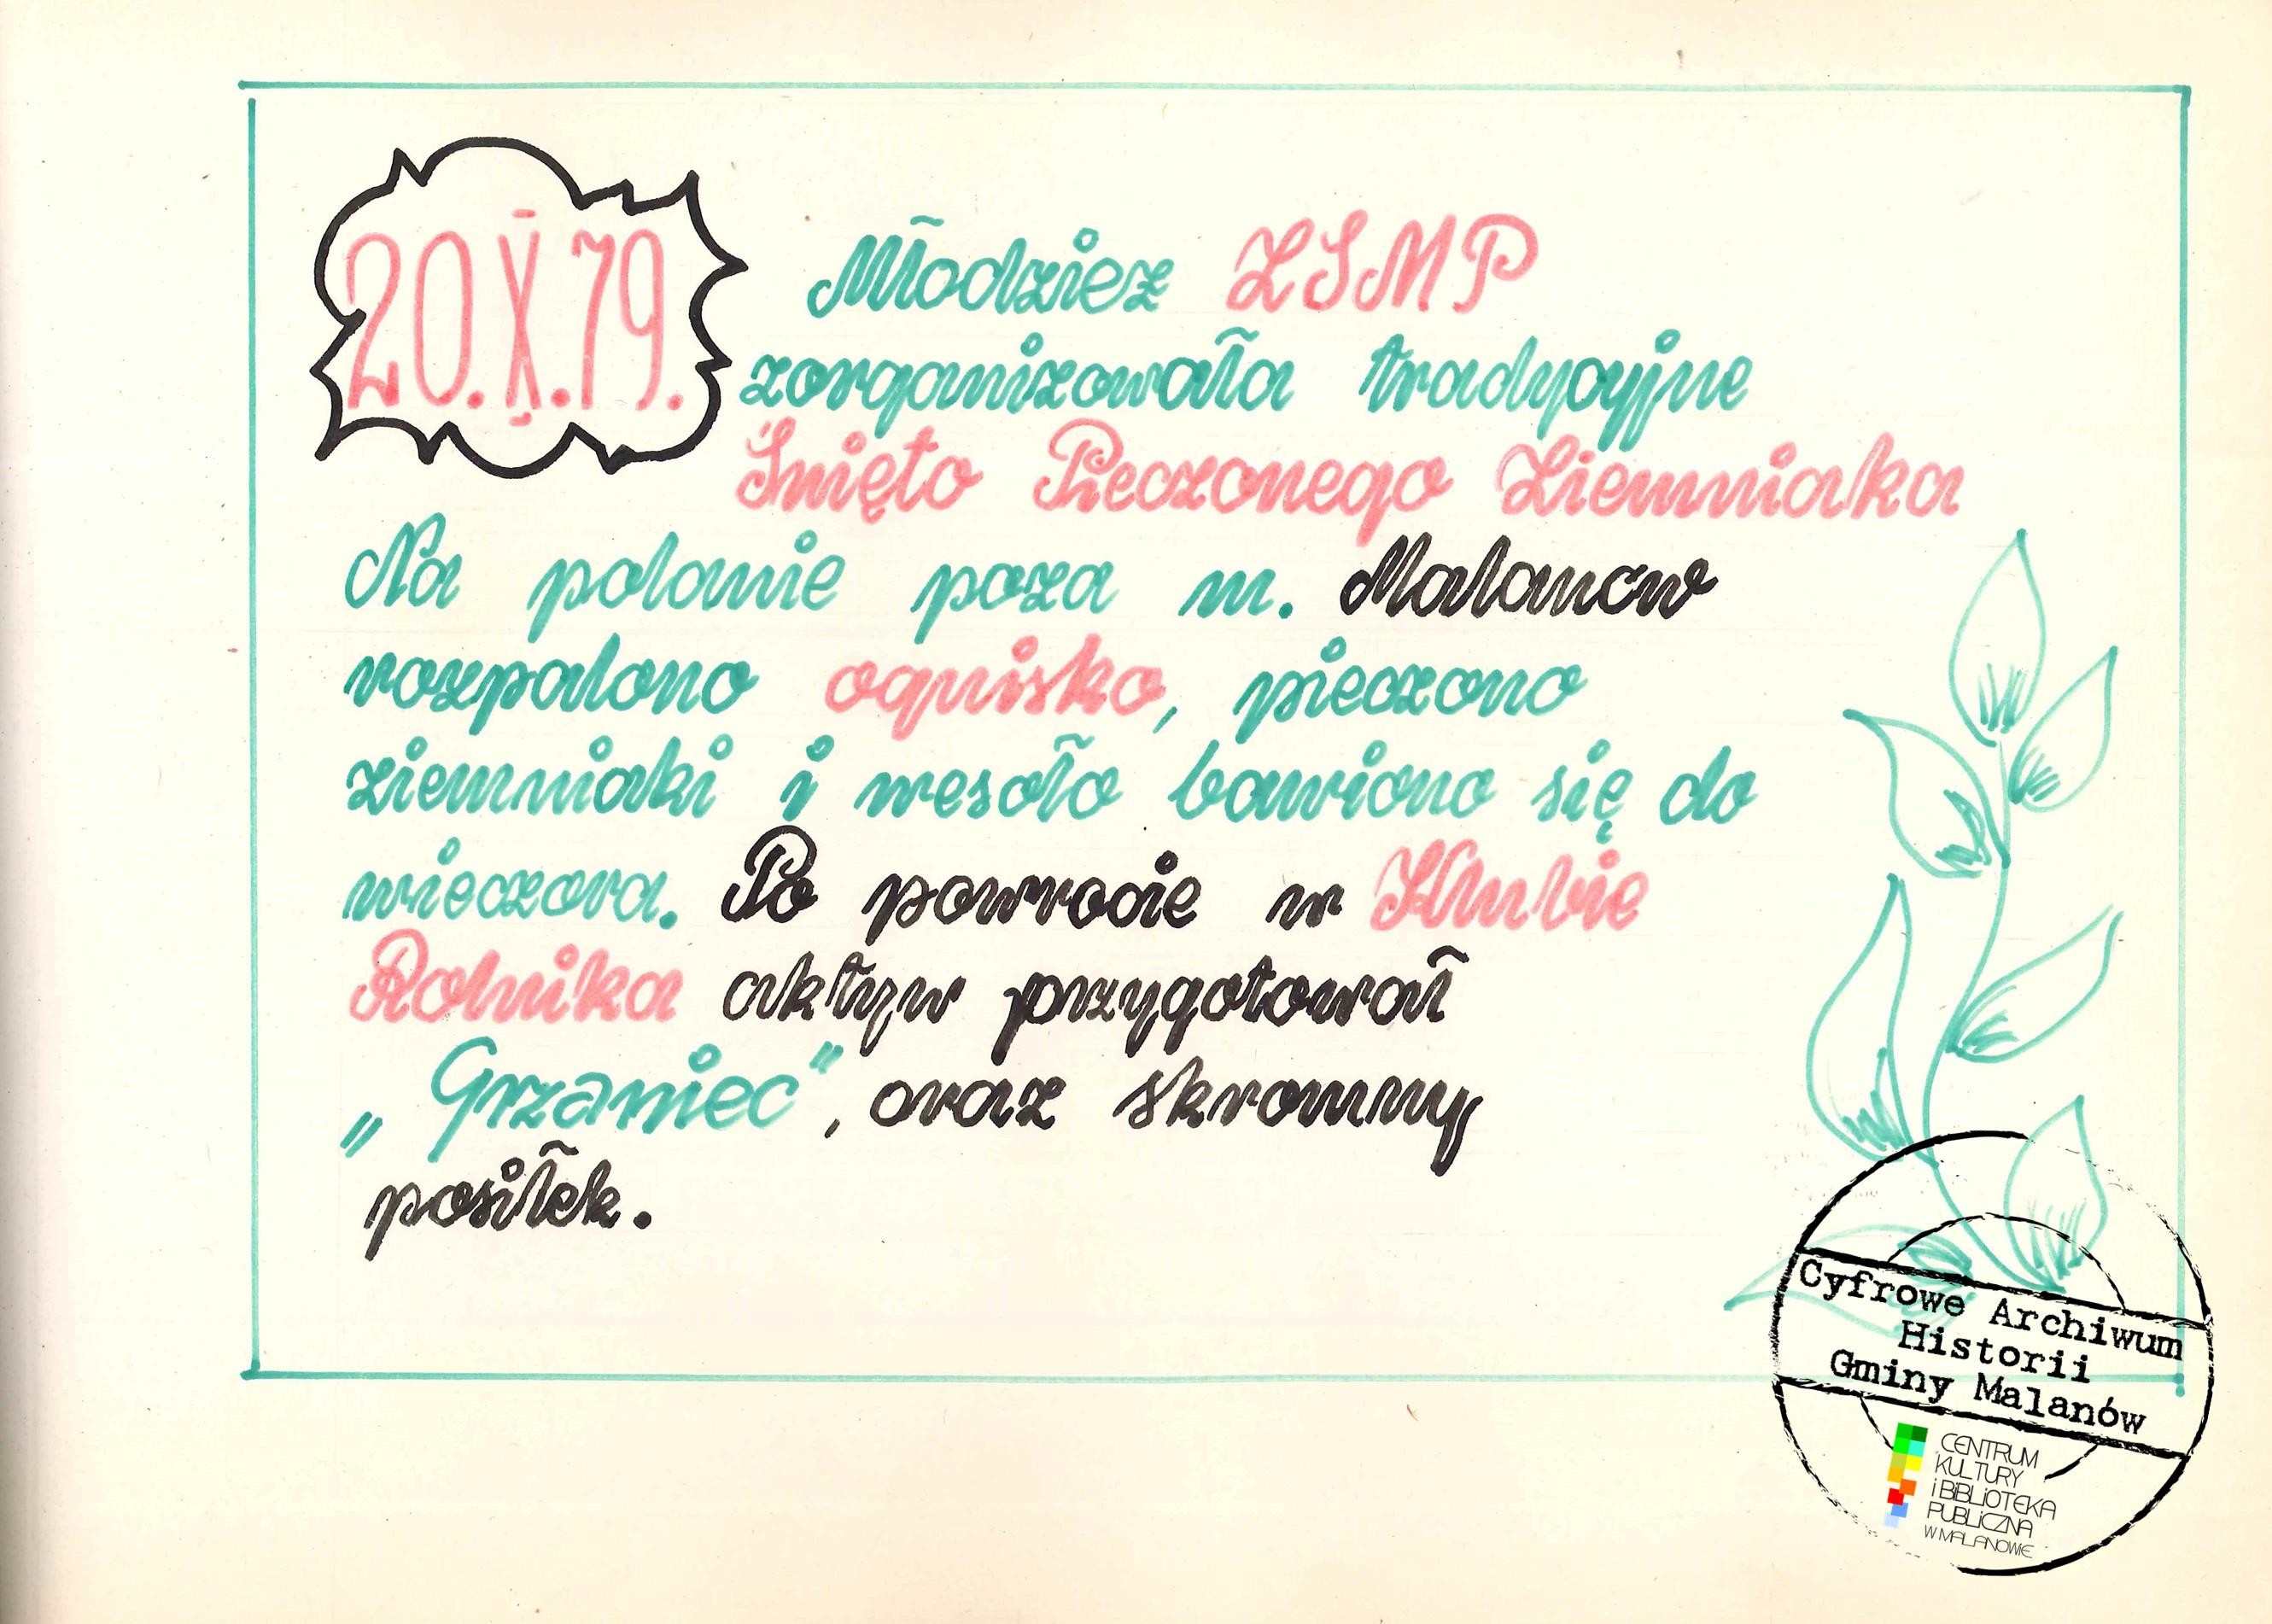 20.X.79.
Młodzież ZSMP
zorganizowała tradycyjne
Święto Pieczonego Ziemniaka
Na polanie poza m. Malanów
rozpalono ognisko, pieczono
ziemniaki i wesoło bawiono się do
wieczora. Po powrocie w Klubie
Rolnika aktyw przygotował
„Grzaniec”, oraz skromny
posiłek.
Cyfrowe Archiwum
Historii
Gminy Malanów
CENTRUM
KULTURY
i BiBLiOTEKA
PUBLiCZNA
W MALANOWiE